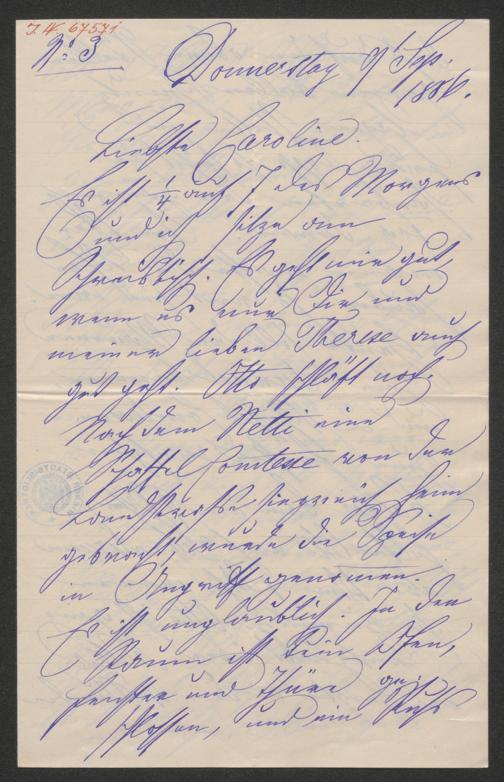 I. N. 67571
Nº 3
Donnerstag 9 Sep.
1886.
Liebste Caroline.
Es ist 1/4 auf 7 des Morgens
und ich sitze am
Schreibtisch. Es geht mir gut,
wenn es nur Dir und
meiner lieben Therese auch
gut geht. Otto schläft noch.
Nachdem Netti eine
Schaffel Comtesse von der
Landstrasse siegreich heim
gebracht, wurde die Speise
in Angriff genomen.
Es ist unglaublich. In den
Raum ist kein Ofen,
Fenster und Thüre ge-
schlossen, und ein